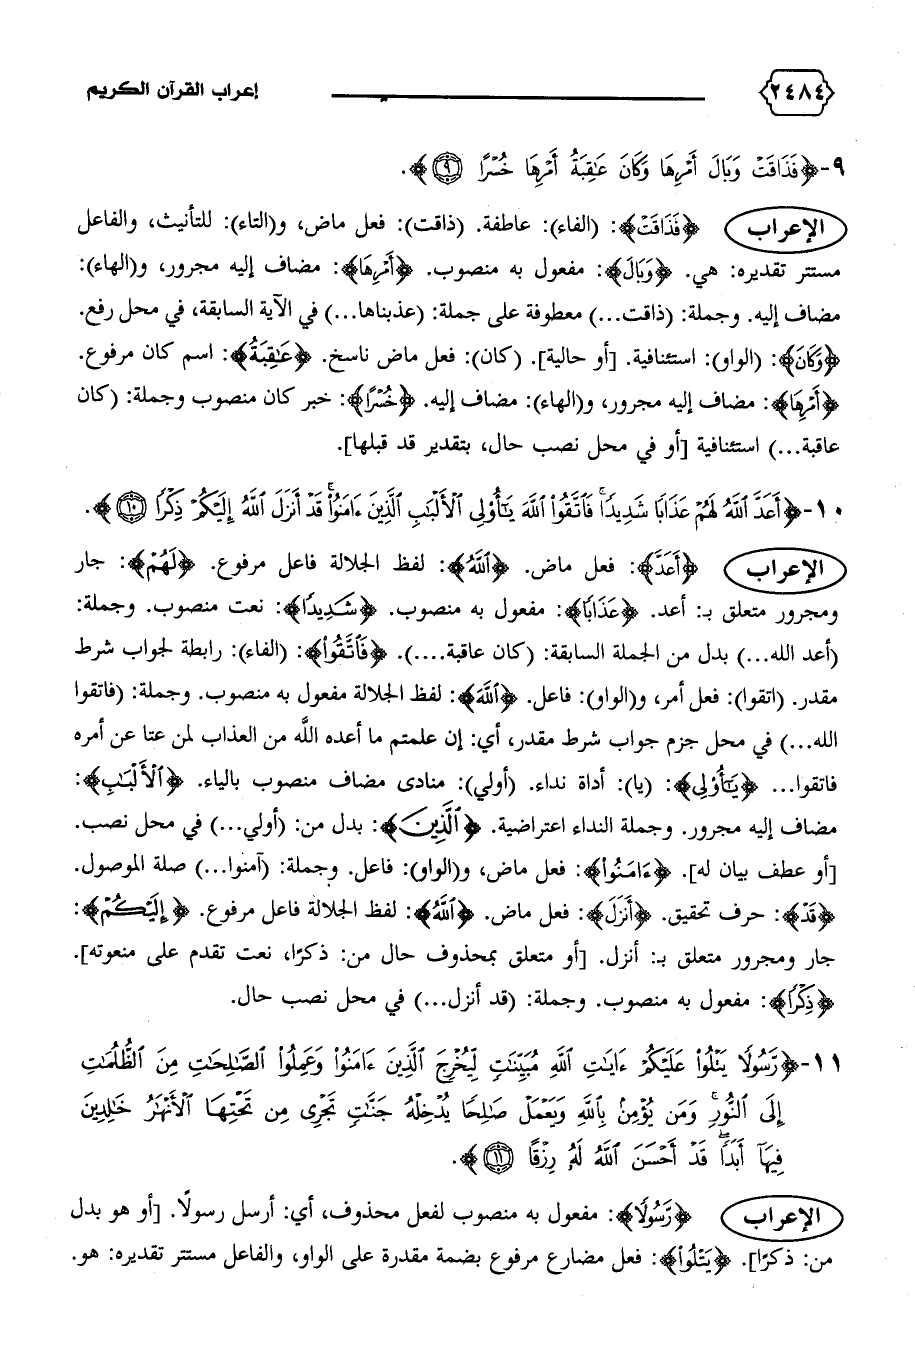 ٢٤٨٤ إعراب القرآن الكريم
٩- ﴿فَذَاقَتْ وَبَالَ أَمْرِهَا وَكَانَ عَٰقِبَةُ أَمْرِهَا خُسْرًا ۝٩﴾.
الإعراب ﴿فَذَاقَتْ﴾: (الفاء): عاطفة. (ذاقت): فعل ماض، و(التاء): للتأنيث، والفاعل
مستتر تقديره: هي. ﴿وَبَالَ﴾: مفعول به منصوب. ﴿أَمْرِهَا﴾: مضاف إليه مجرور، و(الهاء):
مضاف إليه. وجملة: (ذاقت...) معطوفة على جملة: (عذبناها...) في الآية السابقة، في محل رفع.
﴿وَكَانَ﴾: (الواو): استئنافية. [أو حالية]. (كان): فعل ماض ناسخ. ﴿عَٰقِبَةُ﴾: اسم كان مرفوع.
﴿أَمْرِهَا﴾: مضاف إليه مجرور، و(الهاء): مضاف إليه. ﴿خُسْرًا﴾: خبر كان منصوب وجملة: (كان
عاقبة...) استئنافية [أو في محل نصب حال، بتقدير قد قبلها].
١٠- ﴿أَعَدَّ ٱللَّهُ لَهُمْ عَذَابًا شَدِيدًا ۖ فَٱتَّقُوا۟ ٱللَّهَ يَٰٓأُو۟لِى ٱلْأَلْبَٰبِ ٱلَّذِينَ ءَامَنُوا۟ ۚ قَدْ أَنزَلَ ٱللَّهُ إِلَيْكُمْ ذِكْرًا ۝١٠﴾.
الإعراب ﴿أَعَدَّ﴾: فعل ماض. ﴿ٱللَّهُ﴾: لفظ الجلالة فاعل مرفوع. ﴿لَهُمْ﴾: جار
ومجرور متعلق بـ: أعد. ﴿عَذَابًا﴾: مفعول به منصوب. ﴿شَدِيدًا﴾: نعت منصوب. وجملة:
(أعد الله...) بدل من الجملة السابقة: (كان عاقبة....). ﴿فَٱتَّقُوا۟﴾: (الفاء): رابطة لجواب شرط
مقدر. (اتقوا): فعل أمر، و(الواو): فاعل. ﴿ٱللَّهَ﴾: لفظ الجلالة مفعول به منصوب. وجملة: (فاتقوا
الله...) في محل جزم جواب شرط مقدر، أي: إن علمتم ما أعده الله من العذاب لمن عتا عن أمره
فاتقوا... ﴿يَٰٓأُو۟لِى﴾: (يا): أداة نداء. (أولي): منادى مضاف منصوب بالياء. ﴿ٱلْأَلْبَٰبِ﴾:
مضاف إليه مجرور. وجملة النداء اعتراضية. ﴿ٱلَّذِينَ﴾: بدل من: (أولي...) في محل نصب.
[أو عطف بيان له]. ﴿ءَامَنُوا۟﴾: فعل ماض، و(الواو): فاعل. وجملة: (آمنوا...) صلة الموصول.
﴿قَدْ﴾: حرف تحقيق. ﴿أَنزَلَ﴾: فعل ماض. ﴿ٱللَّهُ﴾: لفظ الجلالة فاعل مرفوع. ﴿إِلَيْكُمْ﴾:
جار ومجرور متعلق بـ: أنزل. [أو متعلق بمحذوف حال من: ذكرًا، نعت تقدم على منعوته].
﴿ذِكْرًا﴾: مفعول به منصوب. وجملة: (قد أنزل...) في محل نصب حال.
١١- ﴿رَّسُولًا يَتْلُوا۟ عَلَيْكُمْ ءَايَٰتِ ٱللَّهِ مُبَيِّنَٰتٍ لِّيُخْرِجَ ٱلَّذِينَ ءَامَنُوا۟ وَعَمِلُوا۟ ٱلصَّٰلِحَٰتِ مِنَ ٱلظُّلُمَٰتِ
إِلَى ٱلنُّورِ ۚ وَمَن يُؤْمِنۢ بِٱللَّهِ وَيَعْمَلْ صَٰلِحًا يُدْخِلْهُ جَنَّٰتٍ تَجْرِى مِن تَحْتِهَا ٱلْأَنْهَٰرُ خَٰلِدِينَ
فِيهَآ أَبَدًا ۖ قَدْ أَحْسَنَ ٱللَّهُ لَهُۥ رِزْقًا ۝١١﴾.
الإعراب ﴿رَّسُولًا﴾: مفعول به منصوب لفعل محذوف، أي: أرسل رسولًا. [أو هو بدل
من: ذكرًا]. ﴿يَتْلُوا۟﴾: فعل مضارع مرفوع بضمة مقدرة على الواو، والفاعل مستتر تقديره: هو.